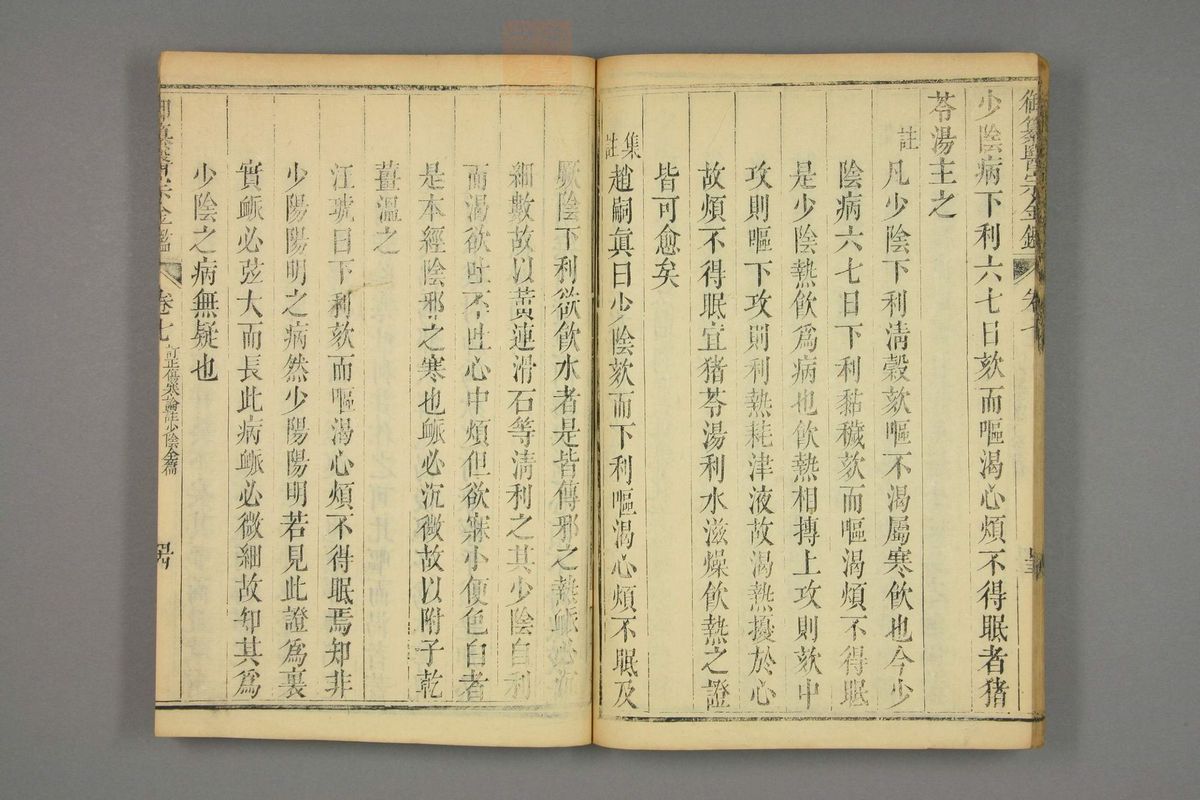 御纂醫宗金鑑 卷七
少陰病下利六七日欬而嘔渴心煩不得眠者猪
苓湯主之
註
凡少陰下利清穀欬嘔不渴屬寒飲也今少
陰病六七日下利黏穢欬而嘔渴煩不得眠
是少陰熱飲爲病也飲熱相摶上攻則欬中
攻則嘔下攻則利熱耗津液故渴熱擾於心
故煩不得眠宜猪苓湯利水滋燥飲熱之證
皆可愈矣
集註
趙嗣眞曰少陰欬而下利嘔渴心煩不眠及
厥陰下利欲飲水者是皆傳邪之熱脈必沉
細數故以黃連滑石等清利之其少陰自利
而渴欲吐不吐心中煩但欲寐小便色白者
是本經陰邪之寒也脈必沉微故以附子乾
薑溫之
汪琥曰下利欬而嘔渴心煩不得眠焉知非
少陽陽明之病然少陽陽明若見此證爲裏
實脈必弦大而長此病脈必微細故知其爲
少陰之病無疑也
御纂醫宗金鑑 卷七 訂正傷寒論註少陰全篇